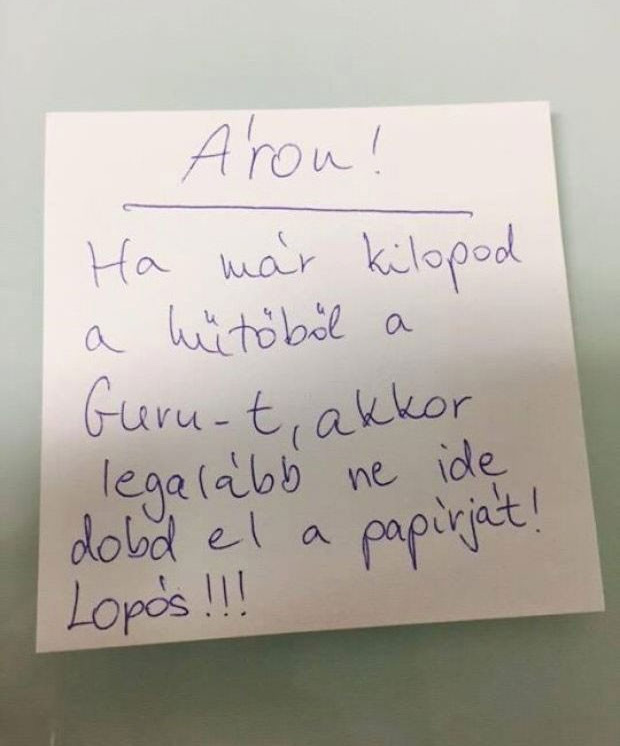 Áron!
Ha már kilopod
a hűtőből a
Guru-t, akkor
legalább ne ide
dobd el a papírját!
Lopós!!!